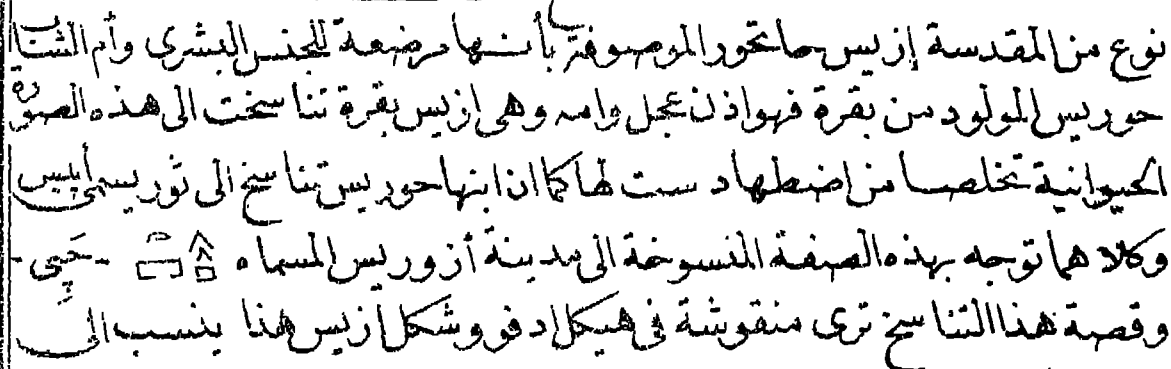 نوع من المقدسة إزيس حاتحور الموصوفة بأنها مرضعة للجنس البشرى وأم الشاب
حوريس المولود من بقرة فهو اذن عجل وامه وهى ازيس بقرة تناسخت الى هذه الصورة
الحيوانية تخلصا من اضطهاد ست لها كما ان ابنها حوريس تناسخ الى ثور يسمى أپيس
وكلاهما توجه بهذه الصفة المنسوخة الى مدينة أزوريس المسماه - حپى -
وقصة هذا التناسخ ترى منقوشة فى هيكل ادفو وشكل ازيس هذا ينسب الى